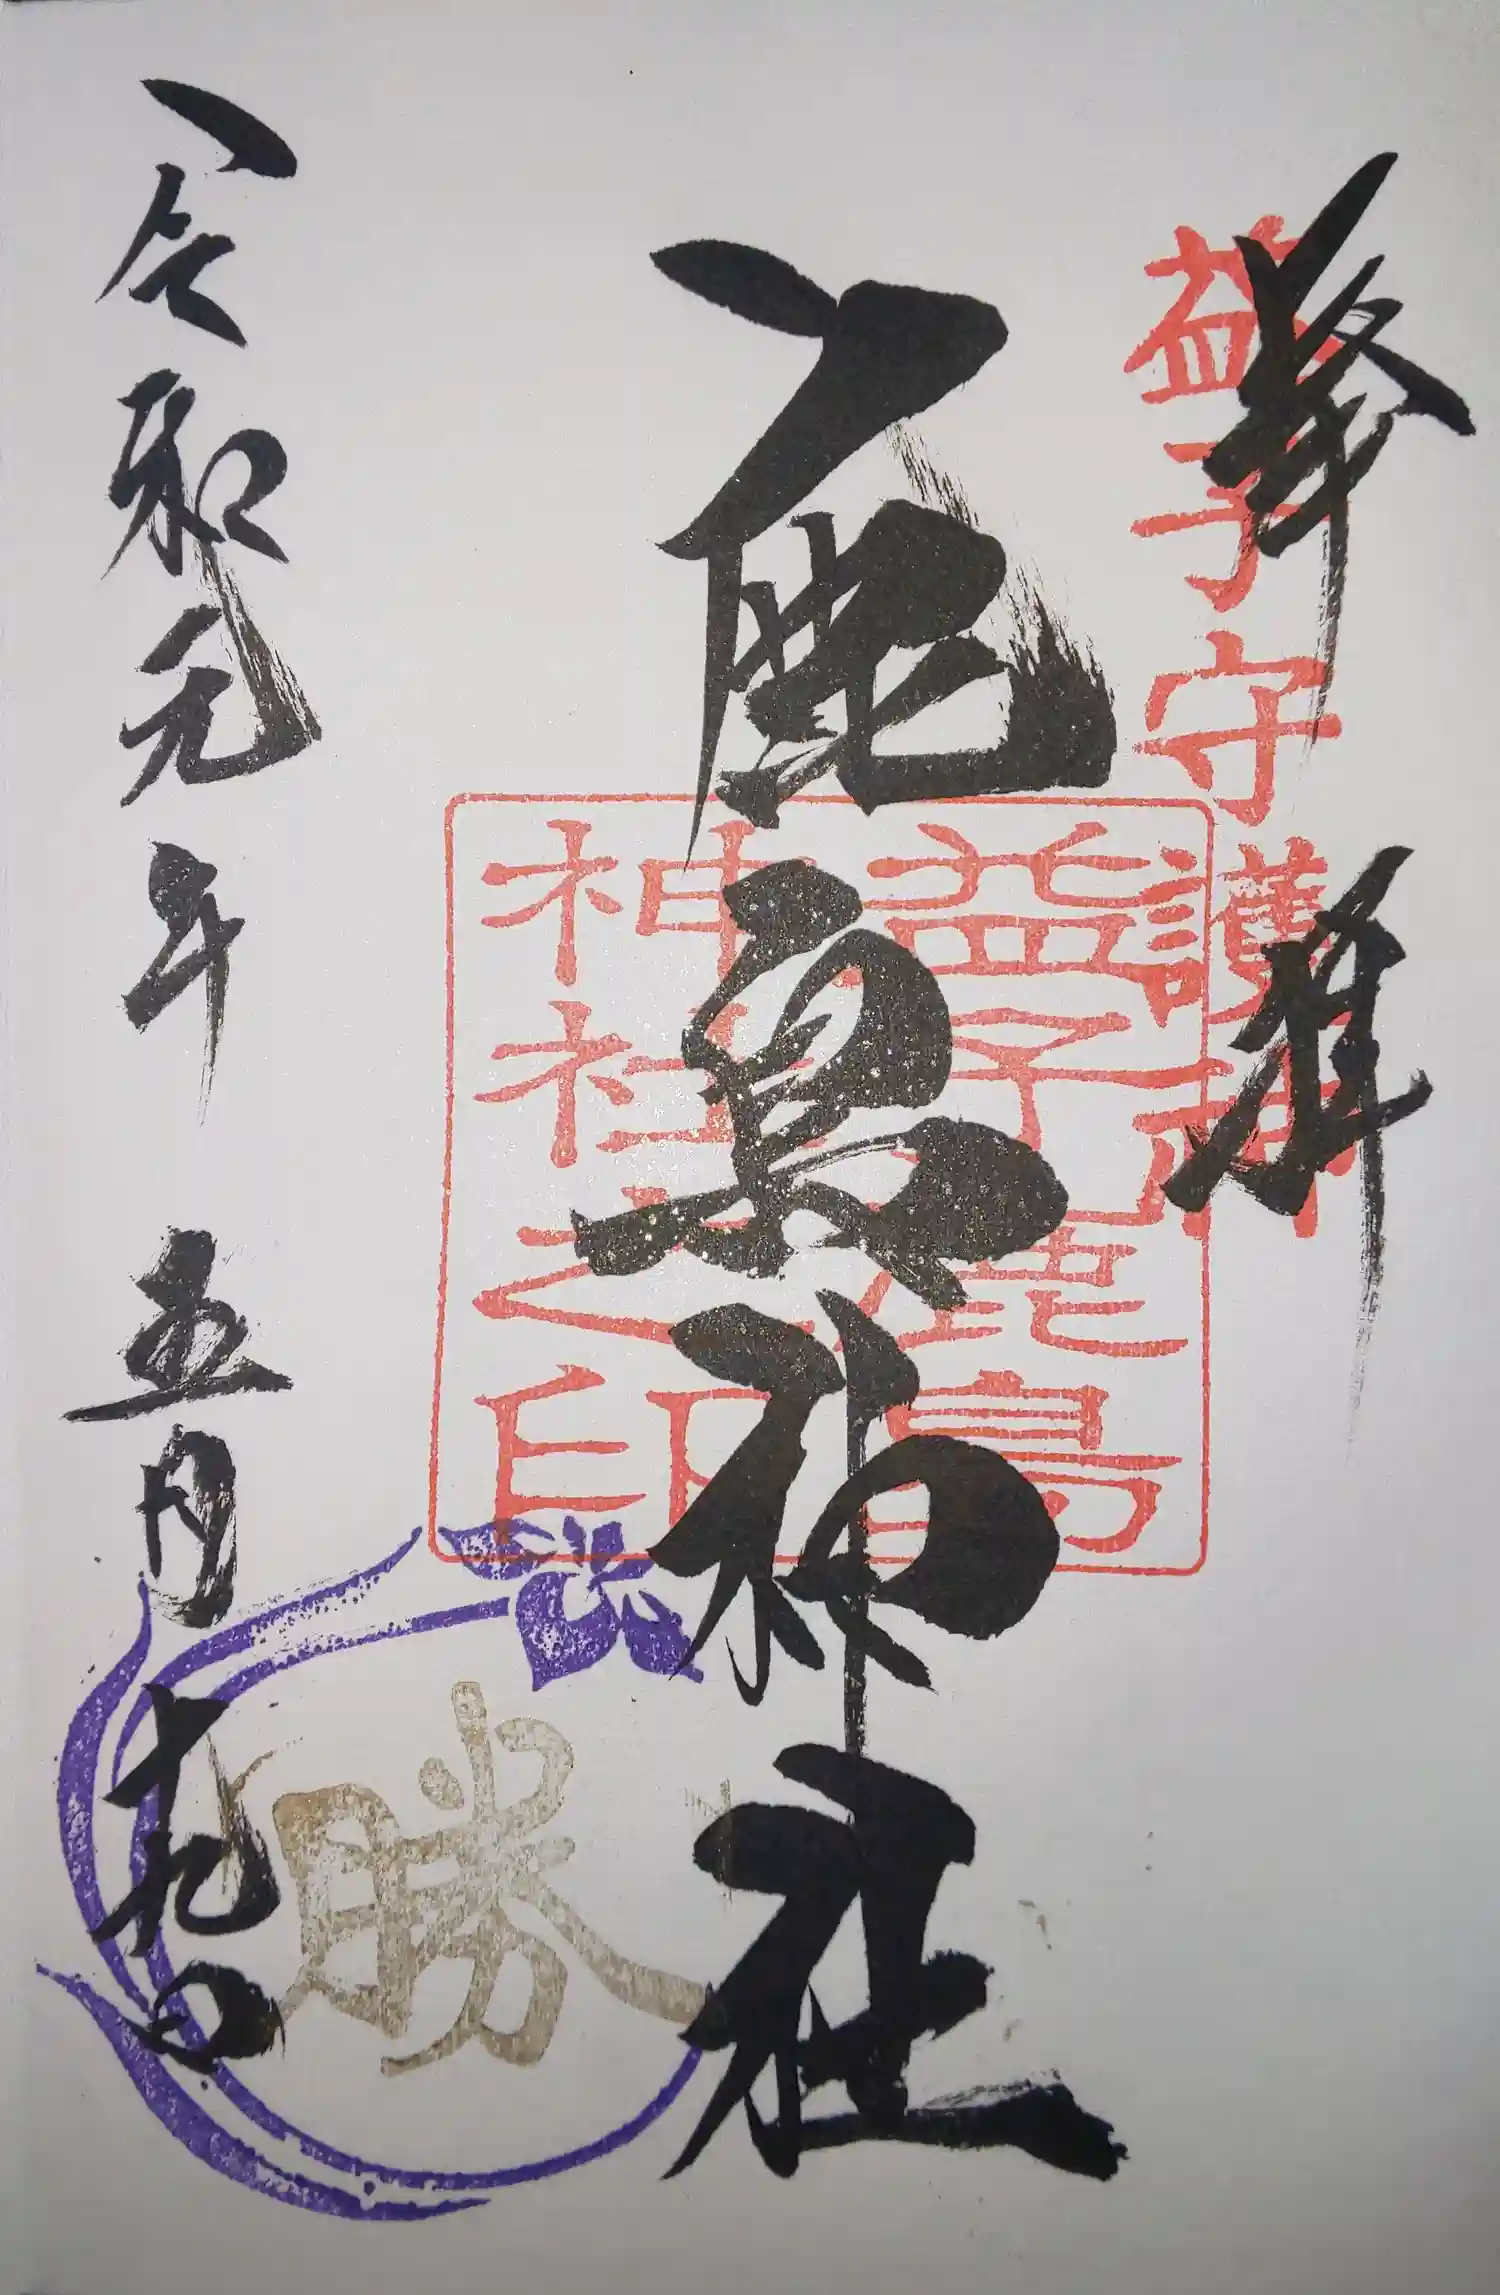 奉拝
益子守護神
鹿島神社
益子鹿島
神社之印
勝
令和元年五月十九日